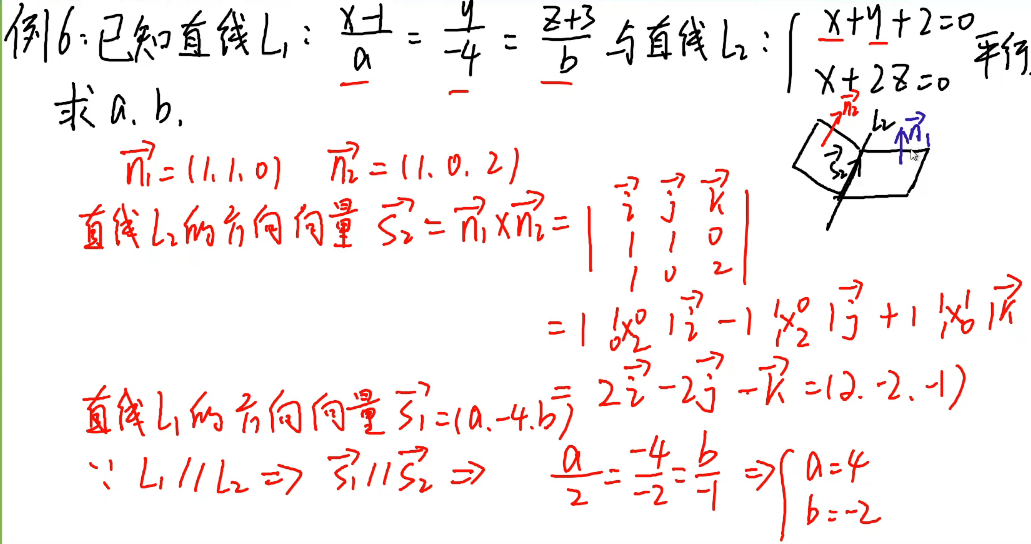 例6:已知直线L₁: (x-1)/a = y/(-4) = (z+3)/b 与直线L₂: { x+y+2=0, x+2z=0 平行
求a.b.
n₂→ L₂ n₁→
S₂→
n₁→=(1.1.0) n₂→=(1.0.2)
直线L₂的方向向量 S₂→ = n₁→×n₂→ = | i→ j→ k→ ; 1 1 0 ; 1 0 2 |
= 1 | 1 0 ; 0 2 | i→ - 1 | 1 0 ; 1 2 | j→ + 1 | 1 1 ; 1 0 | k→
= 2i→ - 2j→ - k→ = (2.-2.-1)
直线L₁的方向向量 S₁→=(a.-4.b)
∵ L₁//L₂ ⇒ S₁→//S₂→ ⇒ a/2 = -4/-2 = b/-1 ⇒ { a=4, b=-2